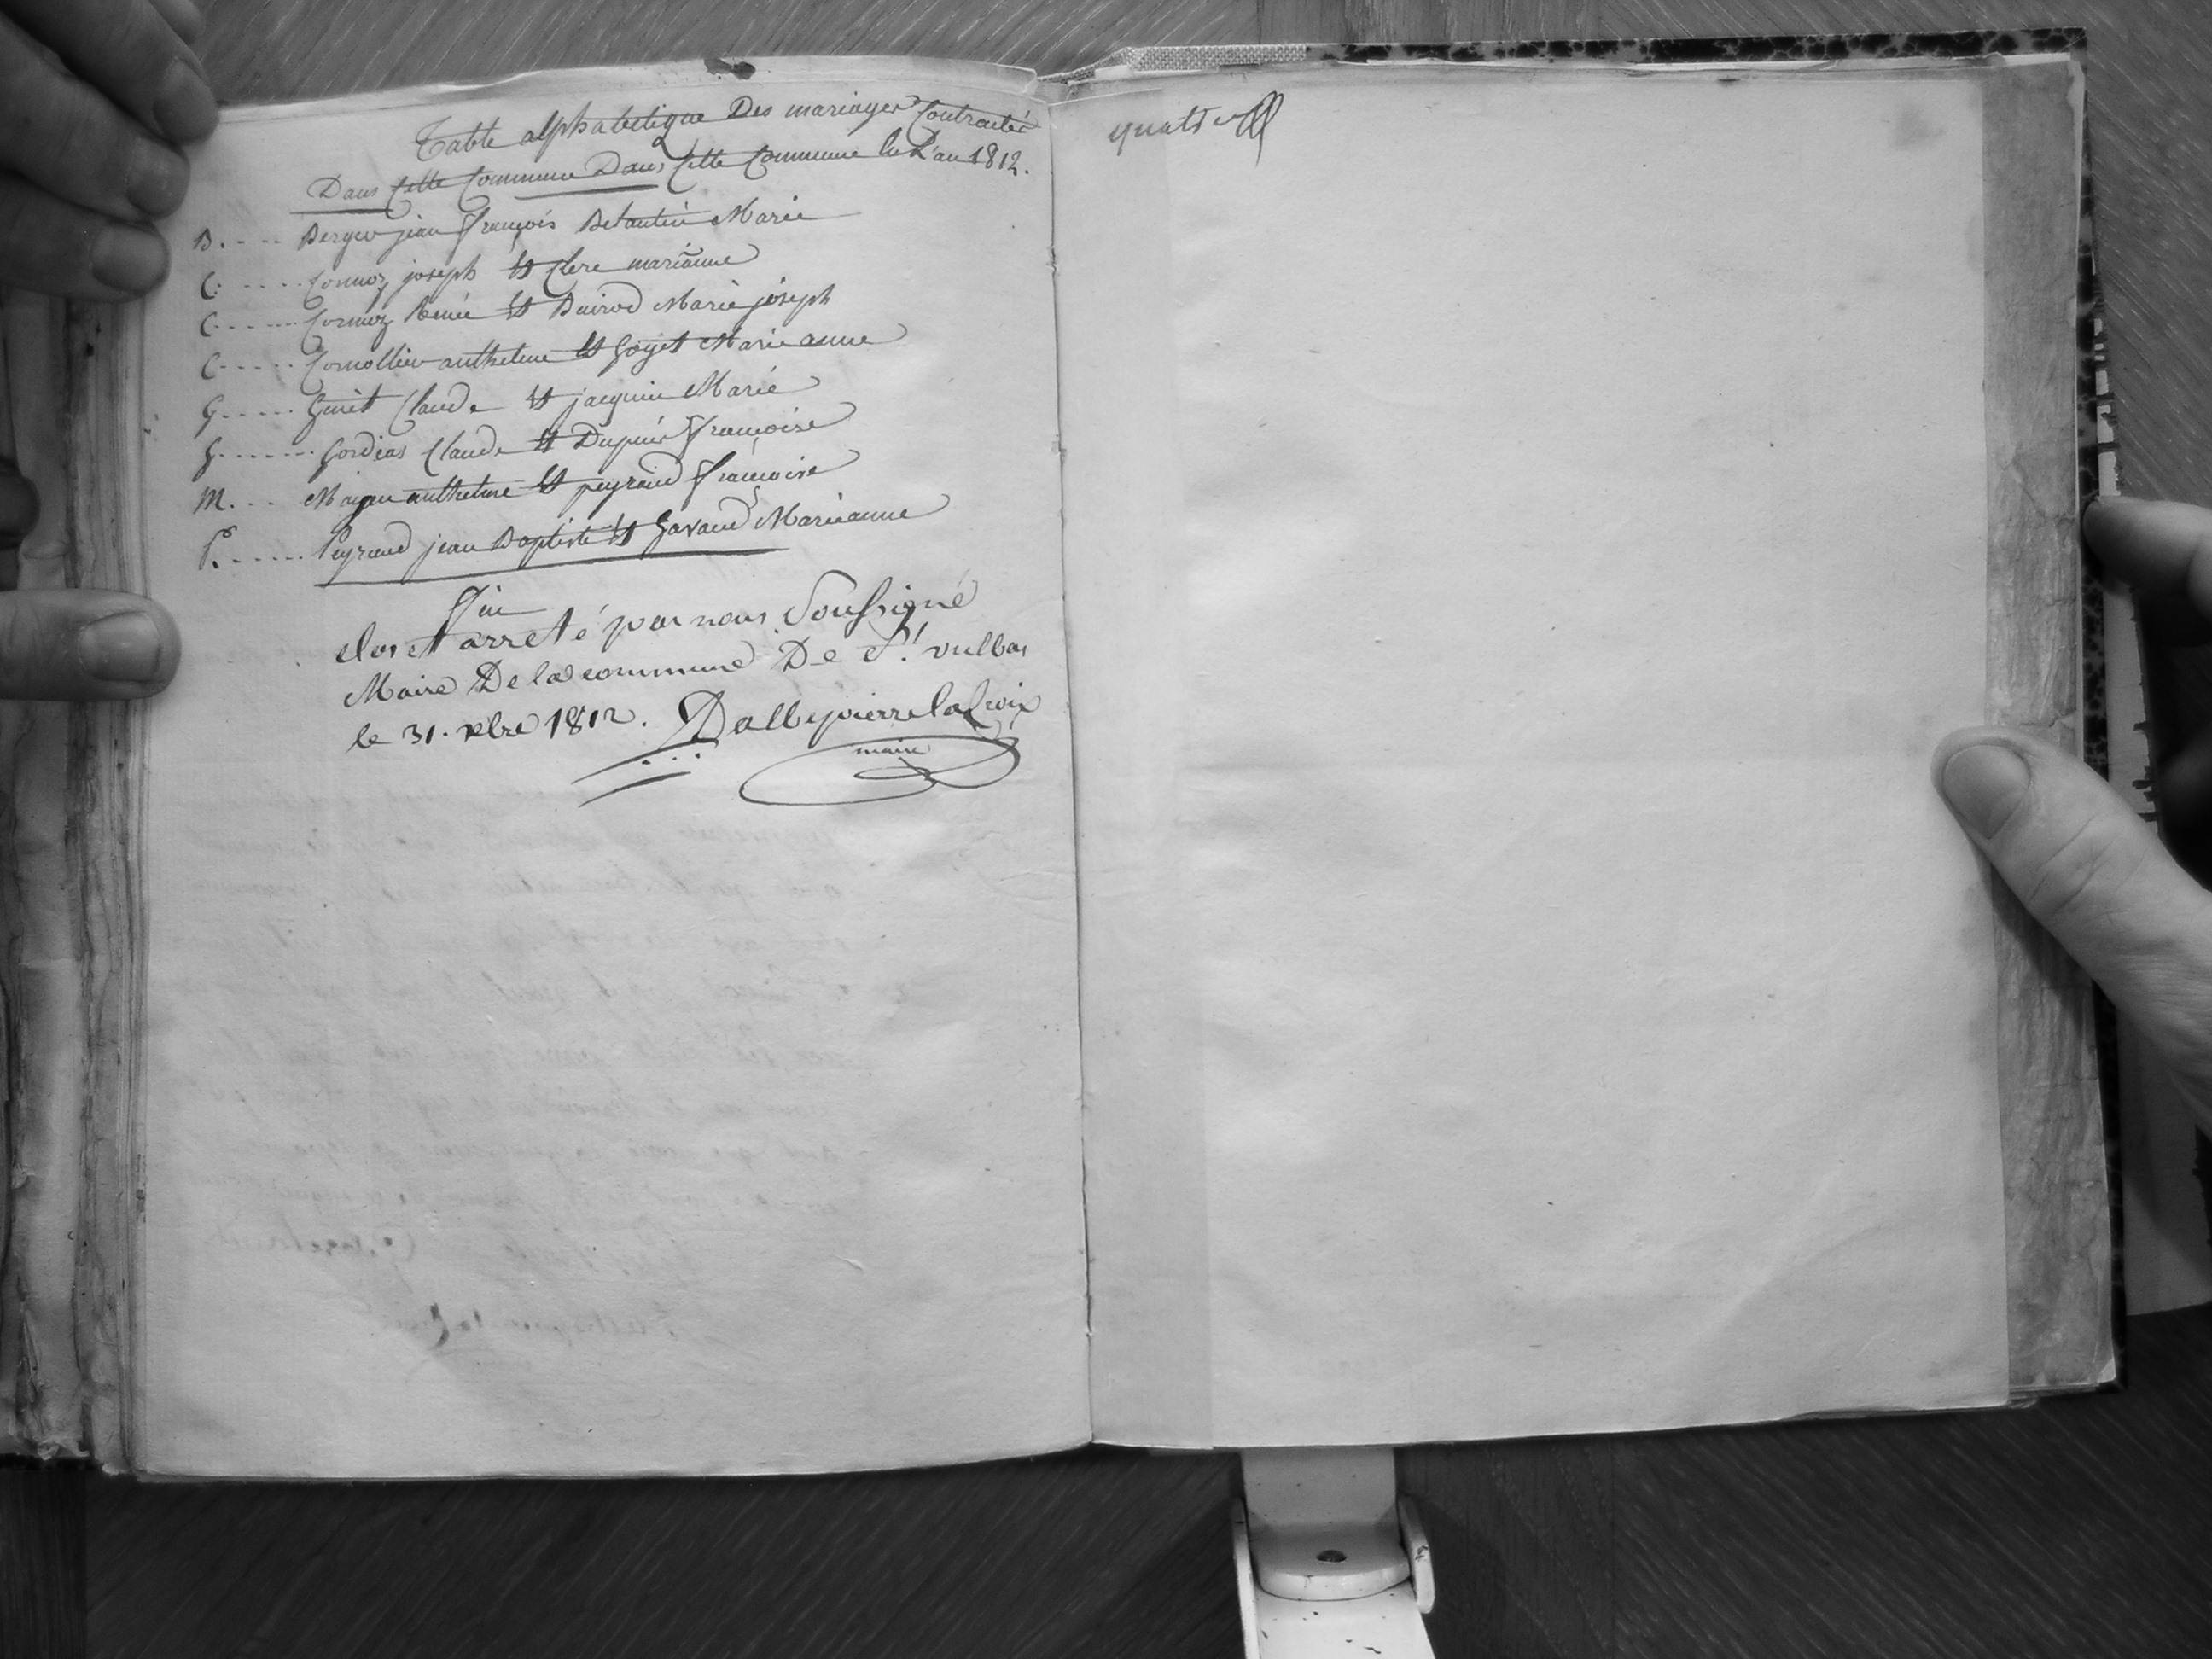 Table alphabetique Des mariages Contractés
Dans Cette Commune Dans Cette Commune En L'an 1812.
B. ---- Berger jean françois Marie
C. ---- Cormoz joseph Et Clerc marianne
C. ---- Cormoz Renée Et Buirod Marie joseph
C. ---- Cornollier anthelme Et Goyet Marie anne
G. ---- Guiet Claude Et jacquin Marie
G. ---- Gordias Claude Et Dupuis Françoise
M. --- anthelme Et peyraud françoise
P. ---- Peyraud jean Baptiste Et Gavand Marieanne
Fin
Clos et arreté par nous Soussigné
Maire De la commune De St. vulbas
le 31. xbre 1812. Dallepierre laCroix
maire